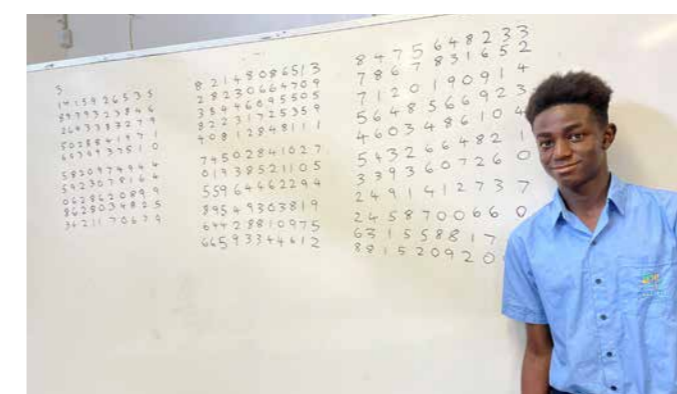 3.
1415926535
8979323846
2643383279
5028841971
6939937510
5820974944
5923078164
0628620899
8628034825
3421170679
82148086513
28230664709
38446095505
82231725359
40812848111
74502841027
01938521105
55964462294
89549303819
64428810975
66593344612
8475648233
7867831652
7120190914
5648566923
4603486104
5432664821
3393607260
2491412737
2458700660
631558817
881520920